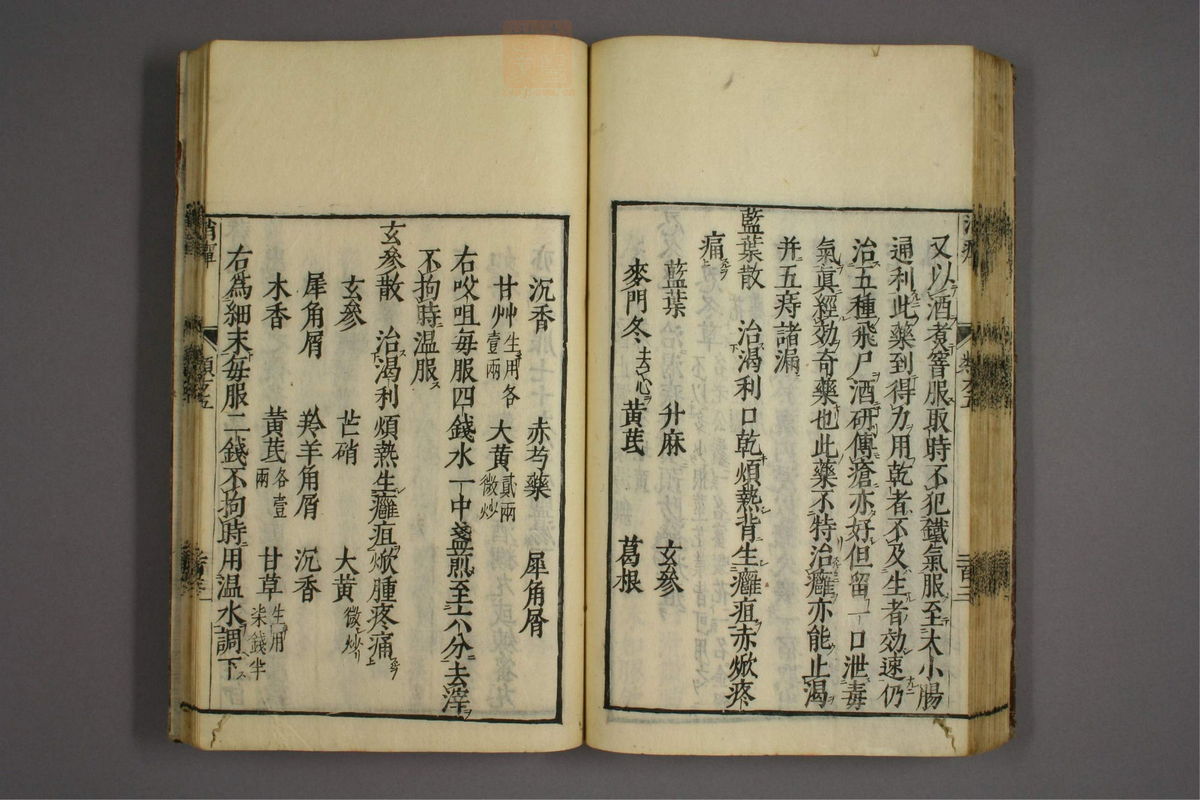 又以酒煮窨服取時不犯鐵氣服至大小腸
通利此藥到得力用乾者不及生者効速仍
治五種飛尸酒研傅瘡亦好但留一口泄毒
氣眞經効奇藥也此藥不特治癰亦能止渴
并五痔諸漏
藍葉散 治渴利口乾煩熱背生癰疽赤焮疼
痛
藍葉 升麻 玄參
麥門冬去心 黃芪 葛根
沉香 赤芍藥 犀角屑
甘艸生用各壹兩 大黃貳兩微炒
右㕮咀每服四錢水一中盞煎至六分去滓
不拘時温服
玄參散 治渴利煩熱生癰疽焮腫疼痛
玄參 芒硝 大黃微炒
犀角屑 羚羊角屑 沉香
木香 黃芪各壹兩 甘草生用柒錢半
右爲細末每服二錢不拘時用温水調下